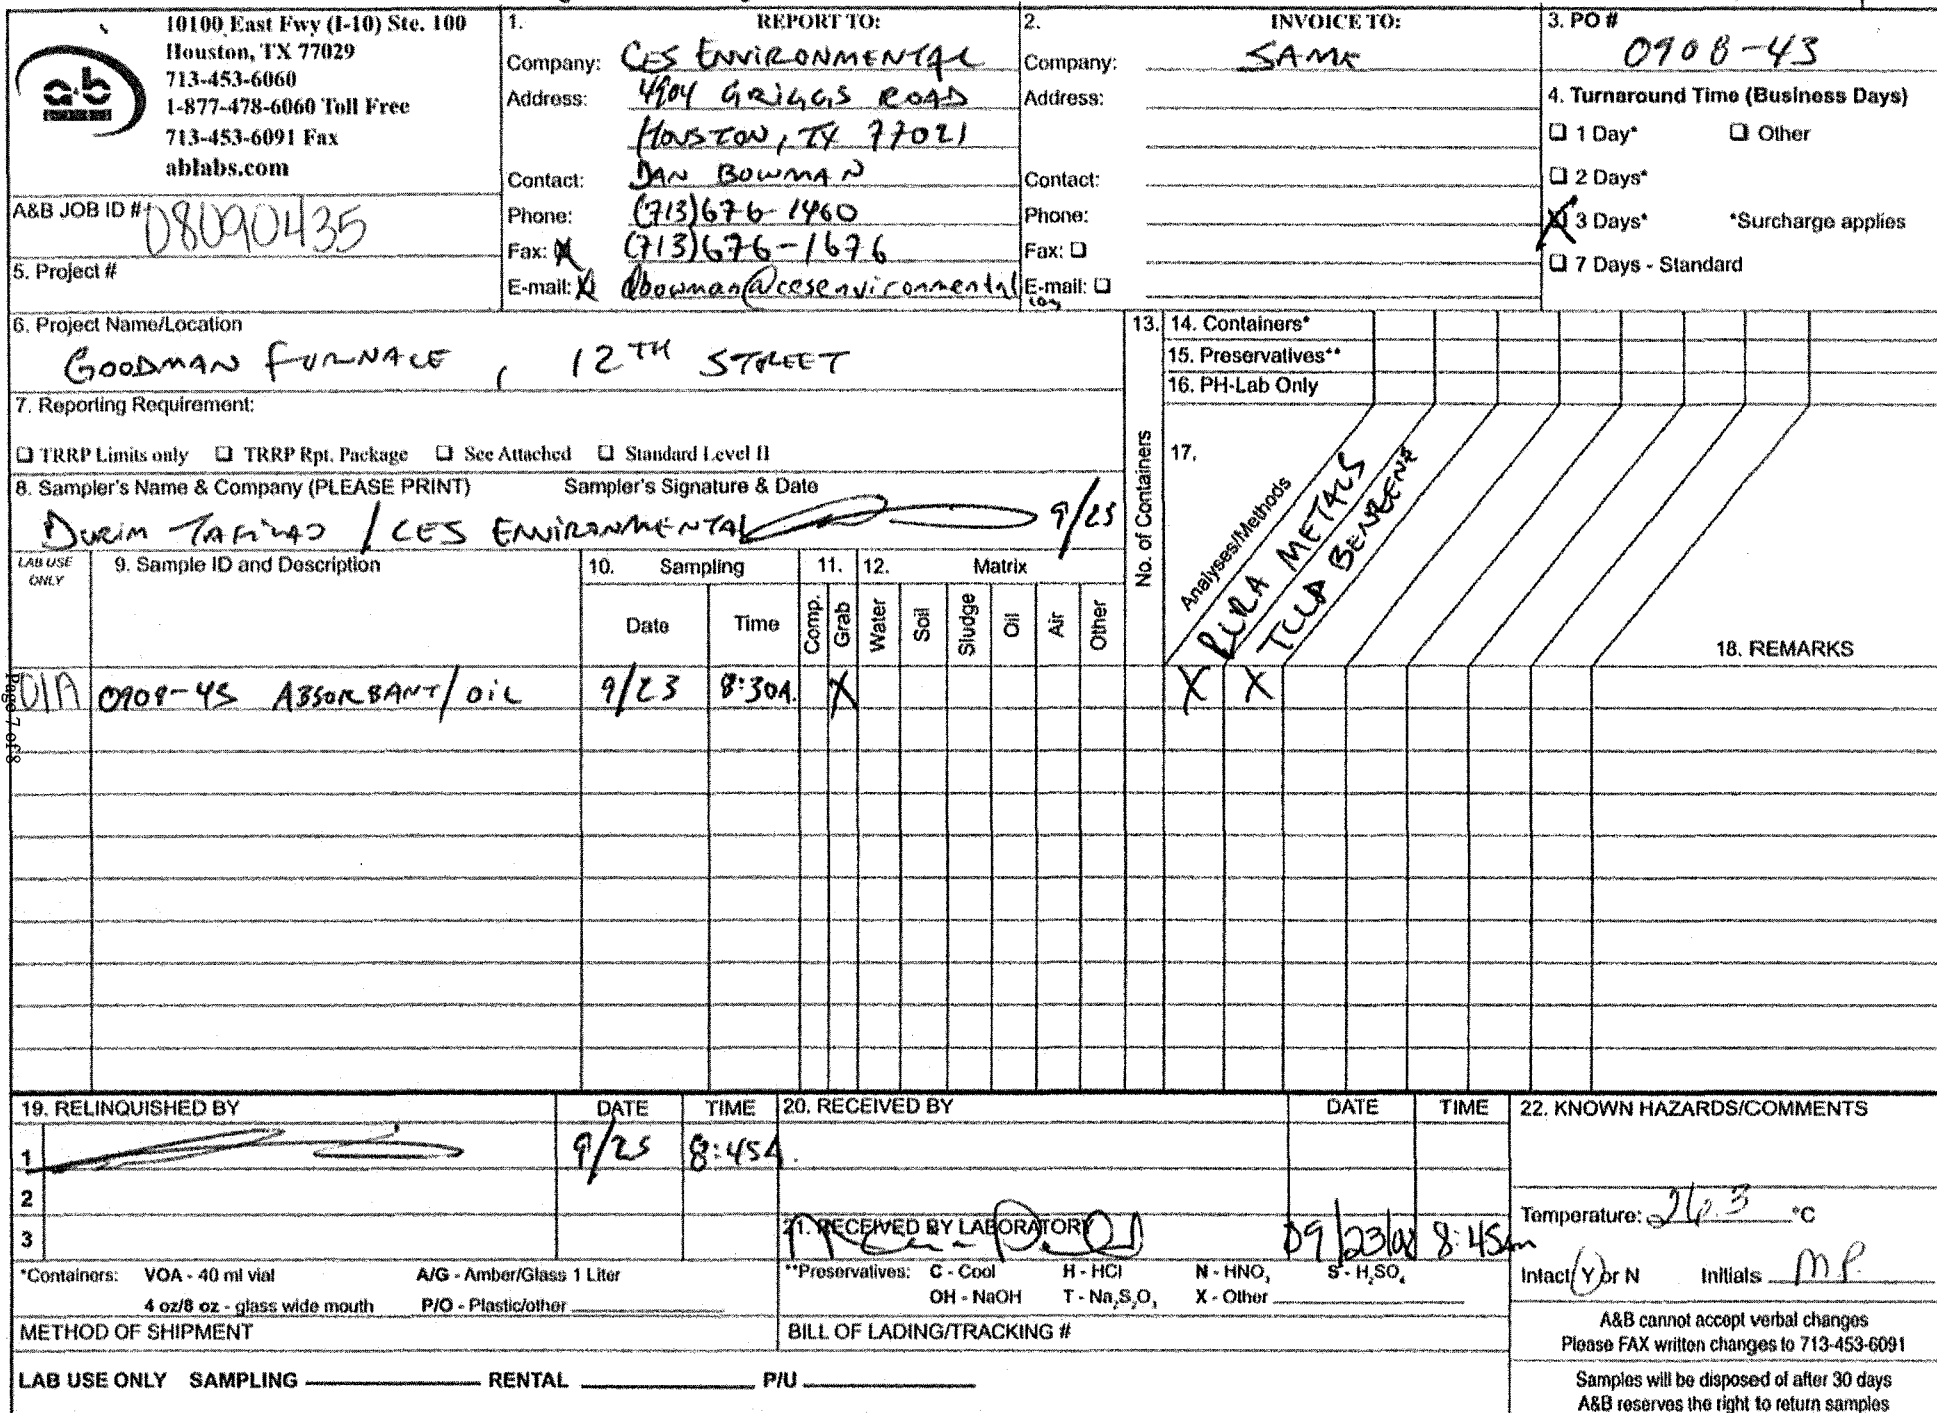 10100 East Fwy (I-10) Ste. 100
Houston, TX 77029
713-453-6060
1-877-478-6060 Toll Free
713-453-6091 Fax
ablabs.com
a&b
A&B JOB ID # 08090435
5. Project #
1. REPORT TO:
Company: CES ENVIRONMENTAL
Address: 4904 GRIGGS ROAD
HOUSTON, TX 77021
Contact: DAN BOWMAN
Phone: (713)676-1460
Fax: X (713)676-1676
E-mail: X dbowman@cesenvironmental
.com
2. INVOICE TO:
Company: SAME
Address:
Contact:
Phone:
Fax: ☐
E-mail: ☐
3. PO #
0908-43
4. Turnaround Time (Business Days)
☐ 1 Day* ☐ Other
☐ 2 Days*
X 3 Days* *Surcharge applies
☐ 7 Days - Standard
6. Project Name/Location
GOODMAN FURNACE, 12TH STREET
7. Reporting Requirement:
☐ TRRP Limits only ☐ TRRP Rpt. Package ☐ See Attached ☐ Standard Level II
8. Sampler's Name & Company (PLEASE PRINT) Sampler's Signature & Date
DURIM / CES ENVIRONMENTAL 9/23
13. No. of Containers
14. Containers*
15. Preservatives**
16. PH-Lab Only
17. Analyses/Methods
RCRA METALS
TCLP BENZENE
LAB USE ONLY
9. Sample ID and Description
10. Sampling
Date Time
11. Comp. Grab
12. Matrix
Water Soil Sludge Oil Air Other
18. REMARKS
01A 0908-43 ABSORBANT/OIL 9/23 8:30A. X X X
Page 7 of 8
19. RELINQUISHED BY DATE TIME
1 9/23 8:45A.
2
3
20. RECEIVED BY DATE TIME
21. RECEIVED BY LABORATORY 09/23/08 8:45am
22. KNOWN HAZARDS/COMMENTS
Temperature: 26.3 °C
Intact Y or N Initials MP
*Containers: VOA - 40 ml vial A/G - Amber/Glass 1 Liter
4 oz/8 oz - glass wide mouth P/O - Plastic/other
**Preservatives: C - Cool H - HCl N - HNO₃ S - H₂SO₄
OH - NaOH T - Na₂S₂O₃ X - Other
METHOD OF SHIPMENT
BILL OF LADING/TRACKING #
A&B cannot accept verbal changes
Please FAX written changes to 713-453-6091
LAB USE ONLY SAMPLING RENTAL P/U
Samples will be disposed of after 30 days
A&B reserves the right to return samples